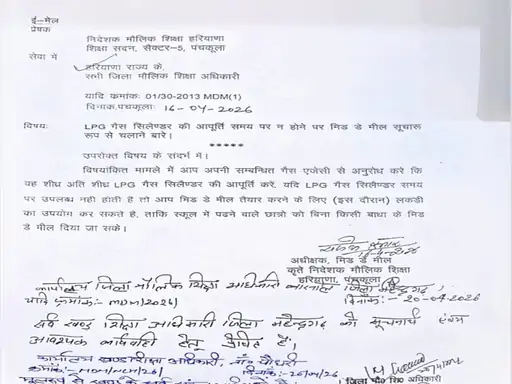 ई-मेल
प्रेषक
निदेशक मौलिक शिक्षा हरियाणा
शिक्षा सदन, सैक्टर-5, पंचकूला
सेवा में
हरियाणा राज्य के,
सभी जिला मौलिक शिक्षा अधिकारी
यादि कमांकः 01/30-2013 MDM(1)
दिनाक,पंचकूलाः 16-04-2026
विषयः LPG गैस सिलेण्डर की आपूर्ति समय पर न होने पर मिड डे मील सूचारू
रूप से चलाने बारे।
*****
उपरोक्त विषय के संदर्भ में।
विषयांकित मामले में आप अपनी सम्बन्धित गैस एजेसी से अनुरोध करे कि
वह शीध्र अति शीध्र LPG गैस सिलैण्डर की आपूर्ति करें, यदि LPG गैस सिलैण्डर समय
पर उपलब्ध नही होती है तो आप मिड डे मील तैयार करने के लिए (इस दौरान) लकडी
का उपयोग कर सकते है, ताकि स्कूल में पढने वाले छात्रो को बिना किसी बाधा के मिड
डे मील दिया जा सके।
अधीक्षक, मिड डे मील
कृते निदेशक मौलिक शिक्षा
हरियाणा, पंचकूला
कार्यालय जिला मौलिक शिक्षा अधिकारी नारनौल जिला महेन्द्रगढ़
यादि क्रमांकः- MDM/2026/ दिनांकः- 20-04-2026
सर्व खण्ड शिक्षा अधिकारी जिला महेन्द्रगढ़ को सूचनार्थ एंवम
आवश्यक कार्यवाही हेतू प्रेषित है।
कार्यालय खण्ड शिक्षा अधिकारी, नां० चौधरी
क्रमांकः- MDM/NM/26/